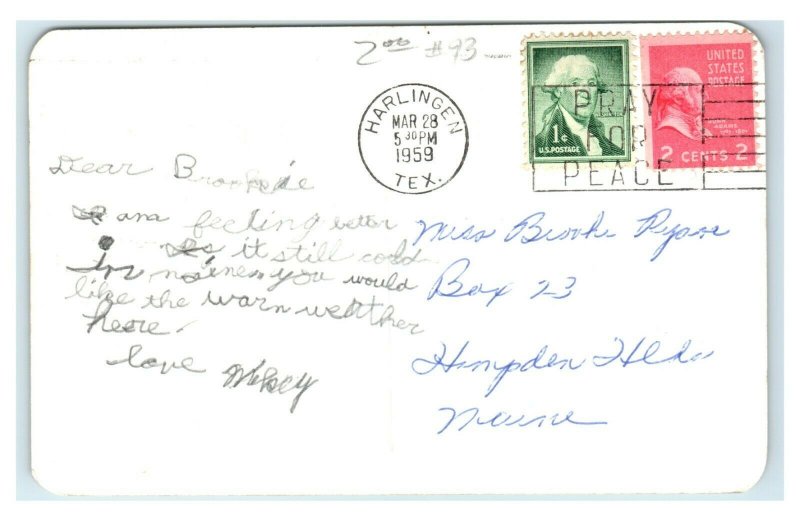 2⁰⁰ #93
HARLINGEN
MAR 28
5 30 PM
1959
TEX.
1¢
U.S. POSTAGE
UNITED
STATES
POSTAGE
JOHN
ADAMS
2 CENTS 2
PRAY
FOR
PEACE
Dear Brookie
I am feeling better
Is it still cold
in maine you would
like the warn weather
here.
love
Miss Brooke
Box 23
Hampden Hlds
Maine